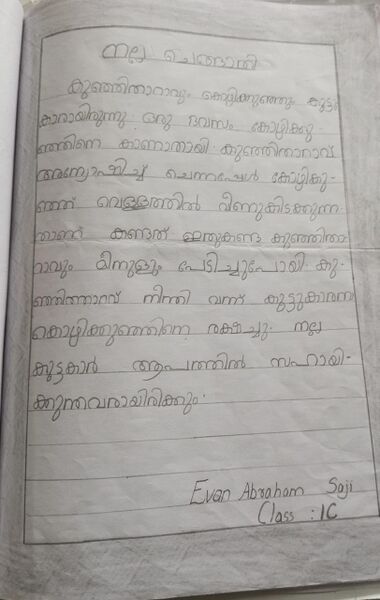 നല്ല ചെങ്ങാതി
കുഞ്ഞിതാറാവും കോഴികുഞ്ഞും കൂട്ടു
കാരായിരുന്നു ഒരു ദവസം കോഴിക്കു
ഞ്ഞിനെ കാണാതായി. കുഞ്ഞിതാറാവ്
അന്വേഷിച്ച് ചെന്നപ്പേൾ കോഴികു-
ഞ്ഞ് വെള്ളത്തിൽ വീണുകിടക്കുന്ന
താണ് കണ്ടത് ഇതുകണ്ട കുഞ്ഞിതാ
റാവും മീനുളും പേടിച്ചുപോയി. കു-
ഞ്ഞിത്താറവ് നീന്തി വന്ന് കൂട്ടുകാരനാ
കൊഴിക്കുഞ്ഞിനെ രക്ഷിച്ചു. നല്ല
കൂട്ടകാർ ആപത്തിൽ സഹായി-
ക്കുന്നവരായിരിക്കും.
Evan Abraham Saji
Class : 1C